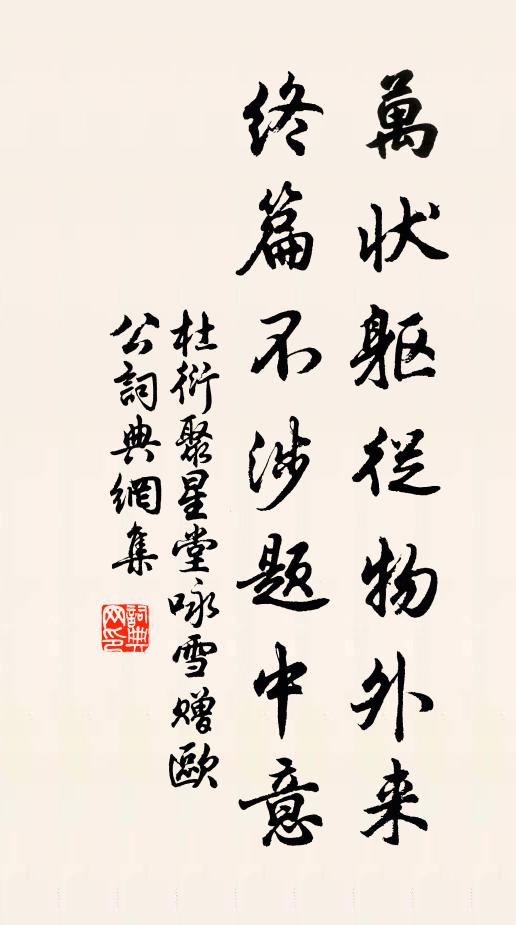 萬状軀従物外来
終篇不涉题中意
杜衍聚星堂咏雪赠歐
公詞典網集
詞典
网印